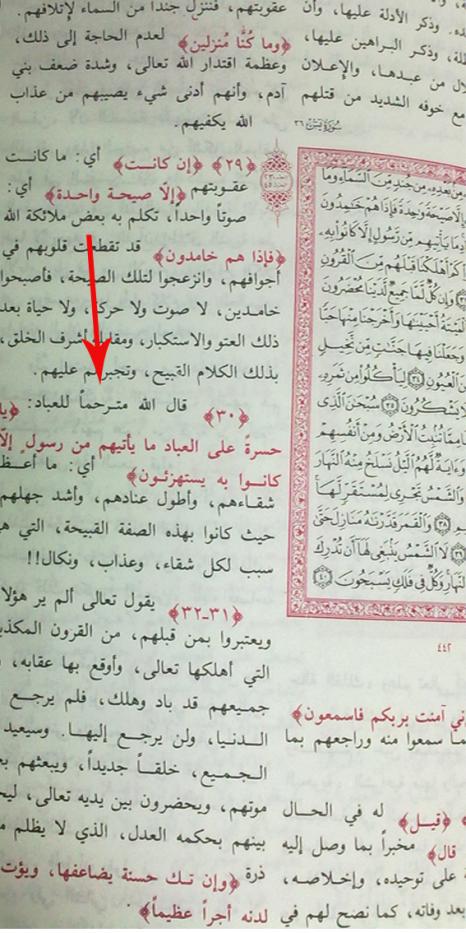 ده. وذكر الأدلة عليها، وأن
طلة، وذكر البراهين عليها،
لال من عبدها، والإعلان
مع خوفه الشديد من قتلهم
سورة يس ٣٦
إلا صيحة وحدة فإذا هم خمدون
كم أهلكنا قبلهم من القرون
وإن كل لما جميع لدينا محضرون
الميتة أحيينها وأخرجنا منها حبا
وجعلنا فيها جنت من نخيل
العيون ليأكلوا من ثمره
يشكرون سبحن الذي
مما تنبت الأرض ومن أنفسهم
وءاية لهم اليل نسلخ منه النهار
والشمس تجرى لمستقر لها
والقمر قدرنه منازل حتى
لا الشمس ينبغى لها أن تدرك
النهار وكل في فلك يسبحون ٤٠
٤٤٢
ني آمنت بربكم فاسمعون﴾
ما سمعوا منه وراجعهم بما
﴿قيل﴾ له في الحال
قال﴾ مخبراً بما وصل إليه
على توحيده، وإخلاصه،
بعد وفاته، كما نصح لهم في
عقوبتهم، فننزل جنداً من السماء لإتلافهم.
﴿وما كنا منزلين﴾ لعدم الحاجة إلى ذلك،
وعظمة اقتدار الله تعالى، وشدة ضعف بني
آدم، وأنهم أدنى شيء يصيبهم من عذاب
الله يكفيهم.
﴿٢٩﴾ ﴿إن كانت﴾ أي: ما كانت
عقوبتهم ﴿إلا صيحة واحدة﴾ أي:
صوتاً واحداً، تكلم به بعض ملائكة الله
﴿فإذا هم خامدون﴾ قد تقطعت قلوبهم في
أجوافهم، وانزعجوا لتلك الصيحة، فأصبحوا
خامدين، لا صوت ولا حركة، ولا حياة بعد
ذلك العتو والاستكبار، ومقابلة أشرف الخلق،
بذلك الكلام القبيح، وتجبرهم عليهم.
﴿٣٠﴾ قال الله مترحماً للعباد: ﴿يا
حسرة على العباد ما يأتيهم من رسول إلا
كانوا به يستهزئون﴾ أي: ما أعظم
شقاءهم، وأطول عنادهم، وأشد جهلهم
حيث كانوا بهذه الصفة القبيحة، التي هي
سبب لكل شقاء، وعذاب، ونكال!!
﴿٣١-٣٢﴾ يقول تعالى ألم ير هؤلا
ويعتبروا بمن قبلهم، من القرون المكذبة
التي أهلكها تعالى، وأوقع بها عقابه،
جميعهم قد باد وهلك، فلم يرجع
الدنيا، ولن يرجع إليها. وسيعيد
الجميع، خلقاً جديداً، ويبعثهم بعد
موتهم، ويحضرون بين يديه تعالى، ليحكم
بينهم بحكمه العدل، الذي لا يظلم
ذرة ﴿وإن تك حسنة يضاعفها، ويؤت
لدنه أجراً عظيماً﴾.